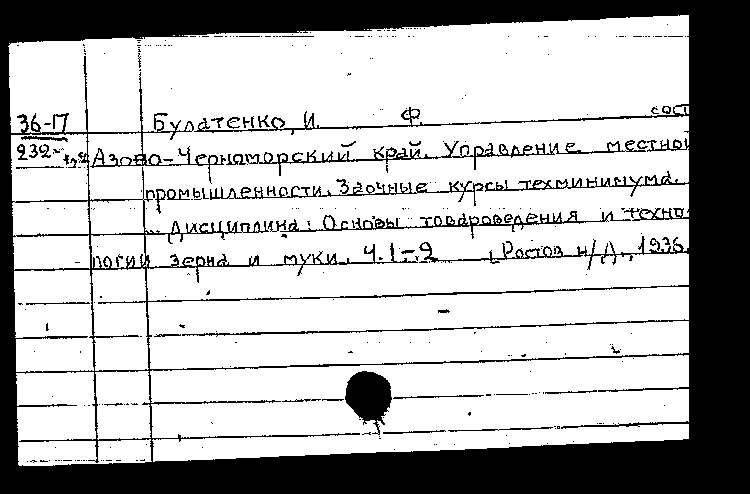 36-17 Булатенко, И. Ф. сост
232- Азово-Черноморский край. Управление местной
промышленности. Заочные курсы техминимума.
.. Дисциплина: Основы товароведения и техно-
логии зерна и муки. Ч.1-2 [Ростов н/Д., 1936.